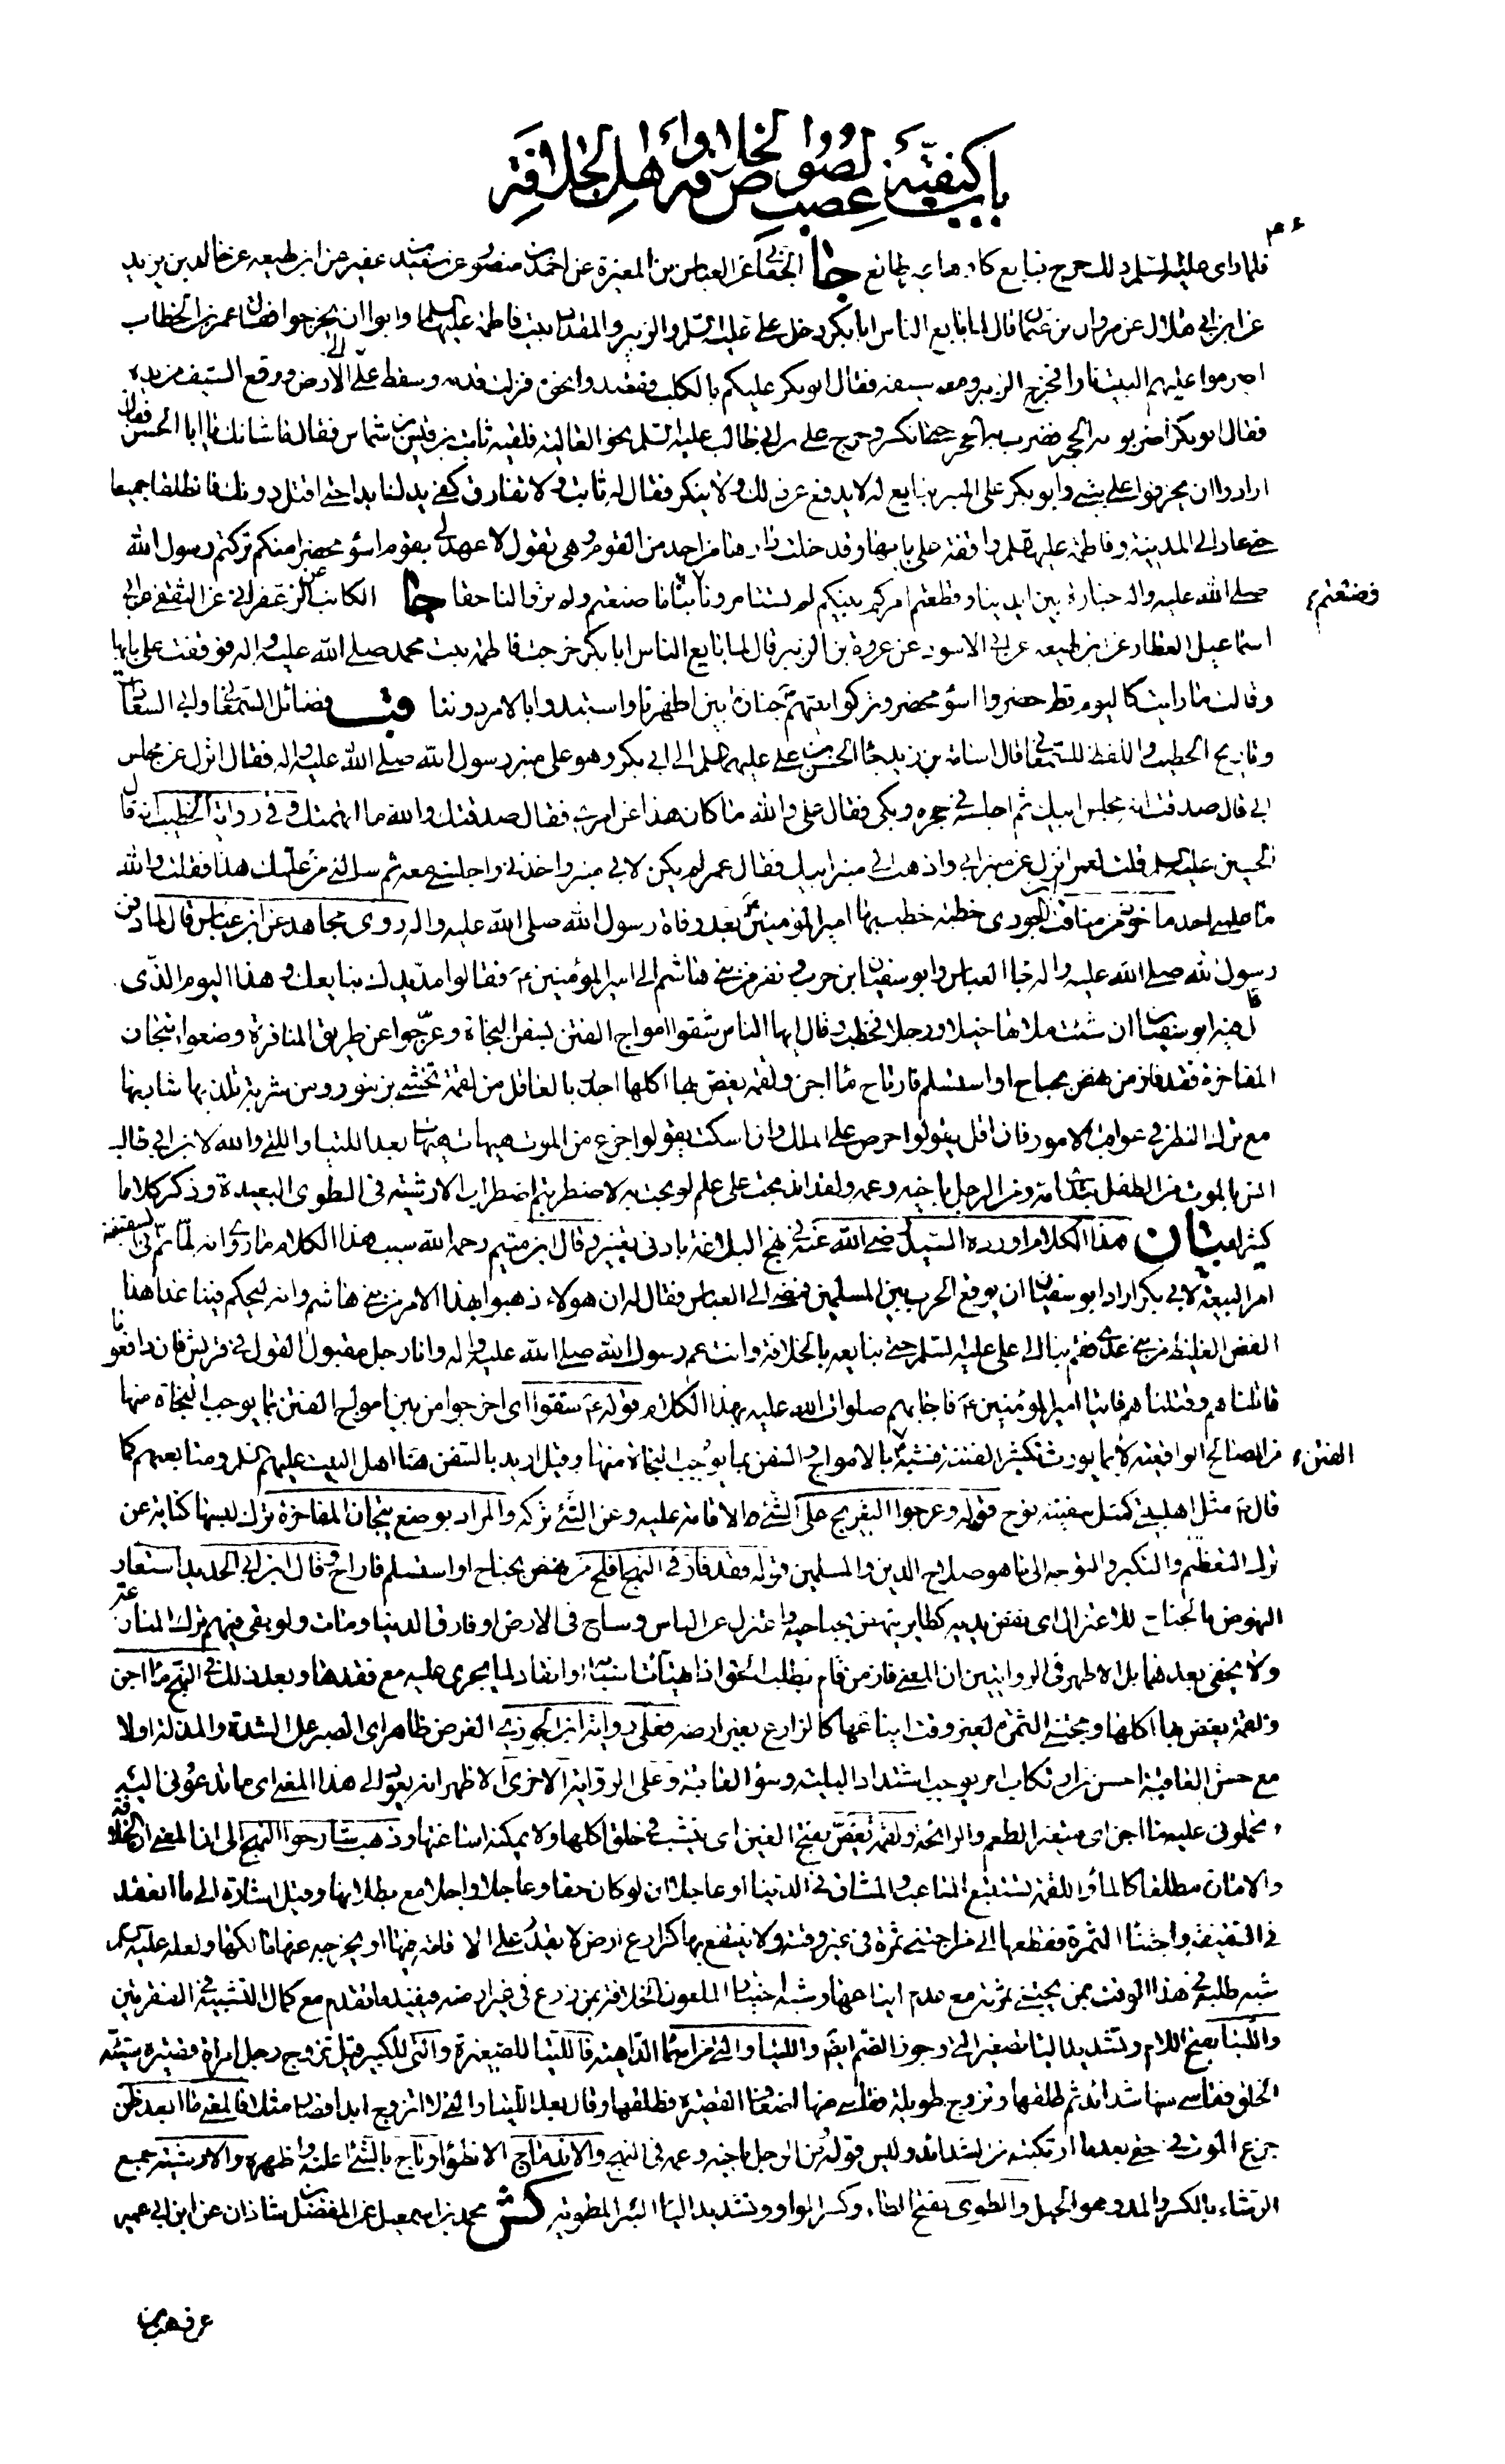 باب كيفية غصب لصوص الخلافة وأهل الجلافة
فلما رأى عليه السلم ذلك خرج فبايع كارها غير طائع جا الجعابى عن العباس بن المغيرة عن احمد بن منصور عن سعيد بن عفير عن ابن لهيعه عن خالد بن يزيد
عن ابن ابى هلال عن مروان بن عثمان قال لما بايع الناس ابا بكر دخل على عليه السلم والزبير والمقداد بيت فاطمة عليها السلم وابوا ان يخرجوا فقال عمر بن الخطاب
اضرموا عليهم البيت نارا فخرج الزبير ومعه سيفه فقال ابو بكر عليكم بالكلب فقصدوا نحوه فزلت قدمه وسقط الى الأرض ووقع السيف من يده
فقال ابو بكر اضربوا به الحجر فضرب به الحجر حتى انكسر وخرج على بن ابى طالب عليه السلم نحو العالية فلقيه ثابت بن قيس بن شماس فقال ما شانك يا ابا الحسن فقال
ارادوا ان يحرقوا على بيتى وابو بكر على المنبر يبايع له لا يدفع عن ذلك ولا ينكر فقال له ثابت ولا تفارق كفى يدك ابدا حتى اقتل دونك فانطلقا جميعا
حتى عادا الى المدينة وفاطمة عليها السلم واقفة على بابها وقد خلت دارها من احد من القوم وهى تقول لا عهد لى بقوم اسوء محضرا منكم تركتم رسول الله
صلى الله عليه واله جنازة بين ايدينا وقطعتم امركم بينكم لم تستامرونا وصنعتم بنا ما صنعتم ولم تروا لنا حقا جا الكاتب عن الزعفرانى عن الثقفى عن ابى
فصنعتم
اسماعيل العطار عن ابن لهيعه عن ابى الاسود عن عروة بن الزبير قال لما بايع الناس ابا بكر خرجت فاطمة بنت محمد صلى الله عليه واله فوقفت على بابها
وقالت ما رايت كاليوم قط حضروا اسوء محضر وتركوا نبيهم جنازة بين اظهرنا واستبدوا بالامر دوننا قب فضائل السمعانى وابى السعادات
وتاريخ الخطيب واللفظ للسمعانى قال اسامة بن زيد جاء الحسن بن على عليهما السلم الى ابى بكر وهو على منبر رسول الله صلى الله عليه واله فقال انزل عن مجلس
ابى قال صدقت انه مجلس ابيك ثم اجلسه فى حجره وبكى فقال على والله ما كان هذا عن امرى فقال صدقتك والله ما اتهمتك وفى رواية الخطيب انه قال
الحسين عليه السلم قلت لعمر انزل عن منبر ابى واذهب الى منبر ابيك فقال عمر لم يكن لابى منبر واخذنى واجلسنى معه ثم سالنى من علمك هذا فقلت والله
ما علمنى احد ما خوذ من مناقب ابن الجوزى خطبة خطب بها امير المؤمنين ع بعد وفاة رسول الله صلى الله عليه واله روى مجاهد عن ابن عباس قال لما دفن
رسول الله صلى الله عليه واله جاء العباس وابو سفيان ابن حرب ونفر من بنى هاشم الى امير المؤمنين ع فقالوا مد يدك نبايعك وهذا اليوم الذى
قال فيه ابو سفيان ان شئت ملاتها خيلا ورجلا فخطب وقال ايها الناس شقوا امواج الفتن بسفن النجاة وعرجوا عن طريق المنافرة وضعوا تيجان
المفاخرة فقد فاز من نهض بجناح او استسلم فارتاح ماء اجن ولقمة يغص بها اكلها اجدر بالعاقل من لقمة تحشى بزنبور ومن شربة تلذ بها شاربها
مع ترك النظر فى عواقب الامور فان اقل يقولوا حرص على الملك وان اسكت يقولوا جزع من الموت هيهات هيهات بعد اللتيا والتى والله لابن ابى طالب
انس بالموت من الطفل بثدى امه ومن الرجل باخيه وعمه ولقد اندمجت على علم لو بحت به لاضطربتم اضطراب الارشية فى الطوى البعيدة وذكر كلاما
كثيرا بيان هذا الكلام اورده السيد رضى الله عنه فى نهج البلاغة بادنى تغيير وقال ابن ميثم رحمه الله سبب هذا الكلام ما روى انه لما تم فى السقيفة
امر البيعة لابى بكر اراد ابو سفيان ان يوقع الحرب بين المسلمين فمضى الى العباس فقال له ان هولاء ذهبوا بهذا الامر من بنى هاشم وانه ليحكم فينا غدا هذا
الفض الغليظ من بنى عدى فقم بنا الى على عليه السلم حتى نبايعه بالخلافة وانت عم رسول الله صلى الله عليه واله وانا رجل مقبول القول فى قريش فان دافعونا
قاتلناهم وقتلناهم فاتيا امير المؤمنين ع فاجابهم صلوات الله عليه بهذا الكلام قوله ع شقوا اى اخرجوا من بين امواج الفتن بما يوجب النجاة منها
من المصالح الواقعية لا بما يورث تكثير الفتنة فشبه بالامواج والسفن بما يوجب النجاة منها وقيل اريد بالسفن هنا اهل البيت عليهم السلم ومتابعتهم كما
الفتن
قال ص مثل اهل بيتى كمثل سفينة نوح قوله وعرجوا التعريج على الشئ الاقامة عليه وعن الشئ تركه والمراد بوضع تيجان المفاخرة ترك لبسها كناية عن
ترك التعظم والتكبر والتوجه الى ما هو صلاح الدين والمسلمين قوله فقد فاز فى النهج افلح من نهض بجناح او استسلم فاراح وقال ابن ابى الحديد استعار
النهوض بالجناح للاعتزال اى نفض يديه كطاير ينهض بجناحيه واعتزل عن الناس وساح فى الارض او فارق الدنيا ومات ولو بقى فيهم ترك المنازعة
ولا يخفى بعدهما بل الاظهر فى الروايتين ان المعنى فاز من قام بطلب الحق اذا تهيات اسبابه او انقاد لما يجرى عليه مع فقدها وبعد ذلك فى النهج ماء اجن
ولقمة يغص بها اكلها ومجتنى الثمرة لغير وقت ايناعها كالزارع بغير ارضه فعلى رواية ابن الجوزى الغرض ظاهر اى الصبر على الشدة والمذلة اولا
مع حسن العاقبة احسن من ارتكاب امر يوجب اشتداد البلية وسوء العاقبة وعلى الرواية الاخرى الاظهر انه يعود الى هذا المعنى اى ما تدعونى اليه
وتحملونى عليه ماء اجن اى متغير الطعم والرائحة ولقمة يغص بفتح الغين اى ينشب فى حلق اكلها ولا يمكنه اساغتها وذهب شارحوا النهج الى ان المعنى ان الخلافة
والامارة مطلقا كالماء واللقمة تستتبع المتاعب والمشاق فى الدنيا او عاجلا ان لو كان حقا وعاجلا واجلا مع بطلانها وقيل اشارة الى ما انعقد
فى السقيفة واجتناء الثمرة قطعها اى من اجتنى ثمرة فى غير وقتها ولا ينتفع بها كزارع ارض لا يقدر على الاقامة فيها او يخرجه عنها مالكها ولعله عليه السلم
شبه طلبه فى هذا الوقت بمن يجتنى ثمرته مع عدم ايناعها وشبه اختيار الملعون الخلافة بمن زرع فى غير ارضه فيفيد ما تقدم مع كمال التشبيه فى الفقرتين
واللتيا بفتح اللام وتشديد الياء تصغير التى وجوز الضم ايضا واللتيا والتى من اسماء الداهية فاللتيا للصغيرة والتى للكبيرة قيل تزوج رجل امراة قصيرة سيئة
الخلق فقاسى منها شدائد ثم طلقها وتزوج طويلة فقاسى منها اضعاف القصيرة فطلقها وقال بعد اللتيا والتى لا اتزوج ابدا فصار مثلا فالمعنى ما ابعد ظن
جزع الموت فى حقى بعد ما ارتكبته من الشدائد وليس قوله ومن الرجل باخيه وعمه فى النهج والاندماج الانطواء وباح بالشئ اعلنه واظهره والارشية جمع
الرشاء بالكسر والمد وهو الحبل والطوى بفتح الطاء وكسر الواو وتشديد الياء البئر المطوية كش محمد بن اسمعيل عن الفضل بن شاذان عن ابن ابى عمير